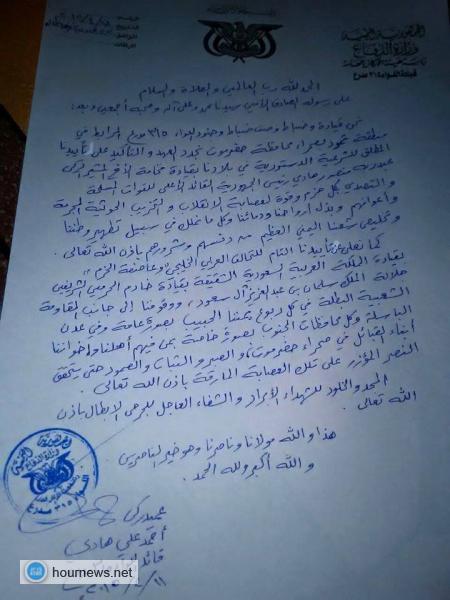 الجمهورية اليمنية
وزارة الدفاع
قيادة اللواء ٣١٥ مدرع
الحمد لله رب العالمين والصلاة والسلام
على رسوله الصادق الأمين سيدنا محمد وعلى آله وصحبه أجمعين وبعد:
نحن قيادة وضباط وصف ضباط وجنود اللواء ٣١٥ مدرع المرابط في
منطقة ثمود بصحراء محافظة حضرموت نجدد العهد والتأكيد على تأييدنا
المطلق للشرعية الدستورية في بلادنا بقيادة فخامة الأخ المشير الركن
عبدربه منصور هادي رئيس الجمهورية القائد الأعلى للقوات المسلحة
والتصدي بكل حزم وقوة لعصابة الانقلاب والتخريب الحوثية المجرمة
وأعوانهم وبذل أرواحنا ودمائنا وكل ما نملك في سبيل تطهير وطننا
وتخليص شعبنا اليمني العظيم من دنسهم وشرورهم باذن الله تعالى.
كما نعلن تأييدنا التام للتحالف العربي الخليجي وعاصفة الحزم
بقيادة المملكة العربية السعودية الشقيقة بقيادة خادم الحرمين الشريفين
جلالة الملك سلمان بن عبدالعزيز آل سعود، ووقوفنا إلى جانب المقاومة
الشعبية البطلة في كل ربوع يمننا الحبيب بصورة عامة وفي عدن
الباسلة وكل محافظات الجنوب بصورة خاصة بمن فيهم أهلنا وإخواننا
أبناء القبائل في صحراء حضرموت، والصبر والثبات والصمود حتى يتحقق
النصر المؤزر على تلك العصابة المارقة باذن الله تعالى.
المجد والخلود للشهداء الأبرار والشفاء العاجل للجرحى الأبطال باذن
الله تعالى.
هذا والله مولانا وناصرنا وهو خير الناصرين
والله أكبر ولله الحمد.
عميد ركن
أحمد علي هادي
قائد
hournews.net